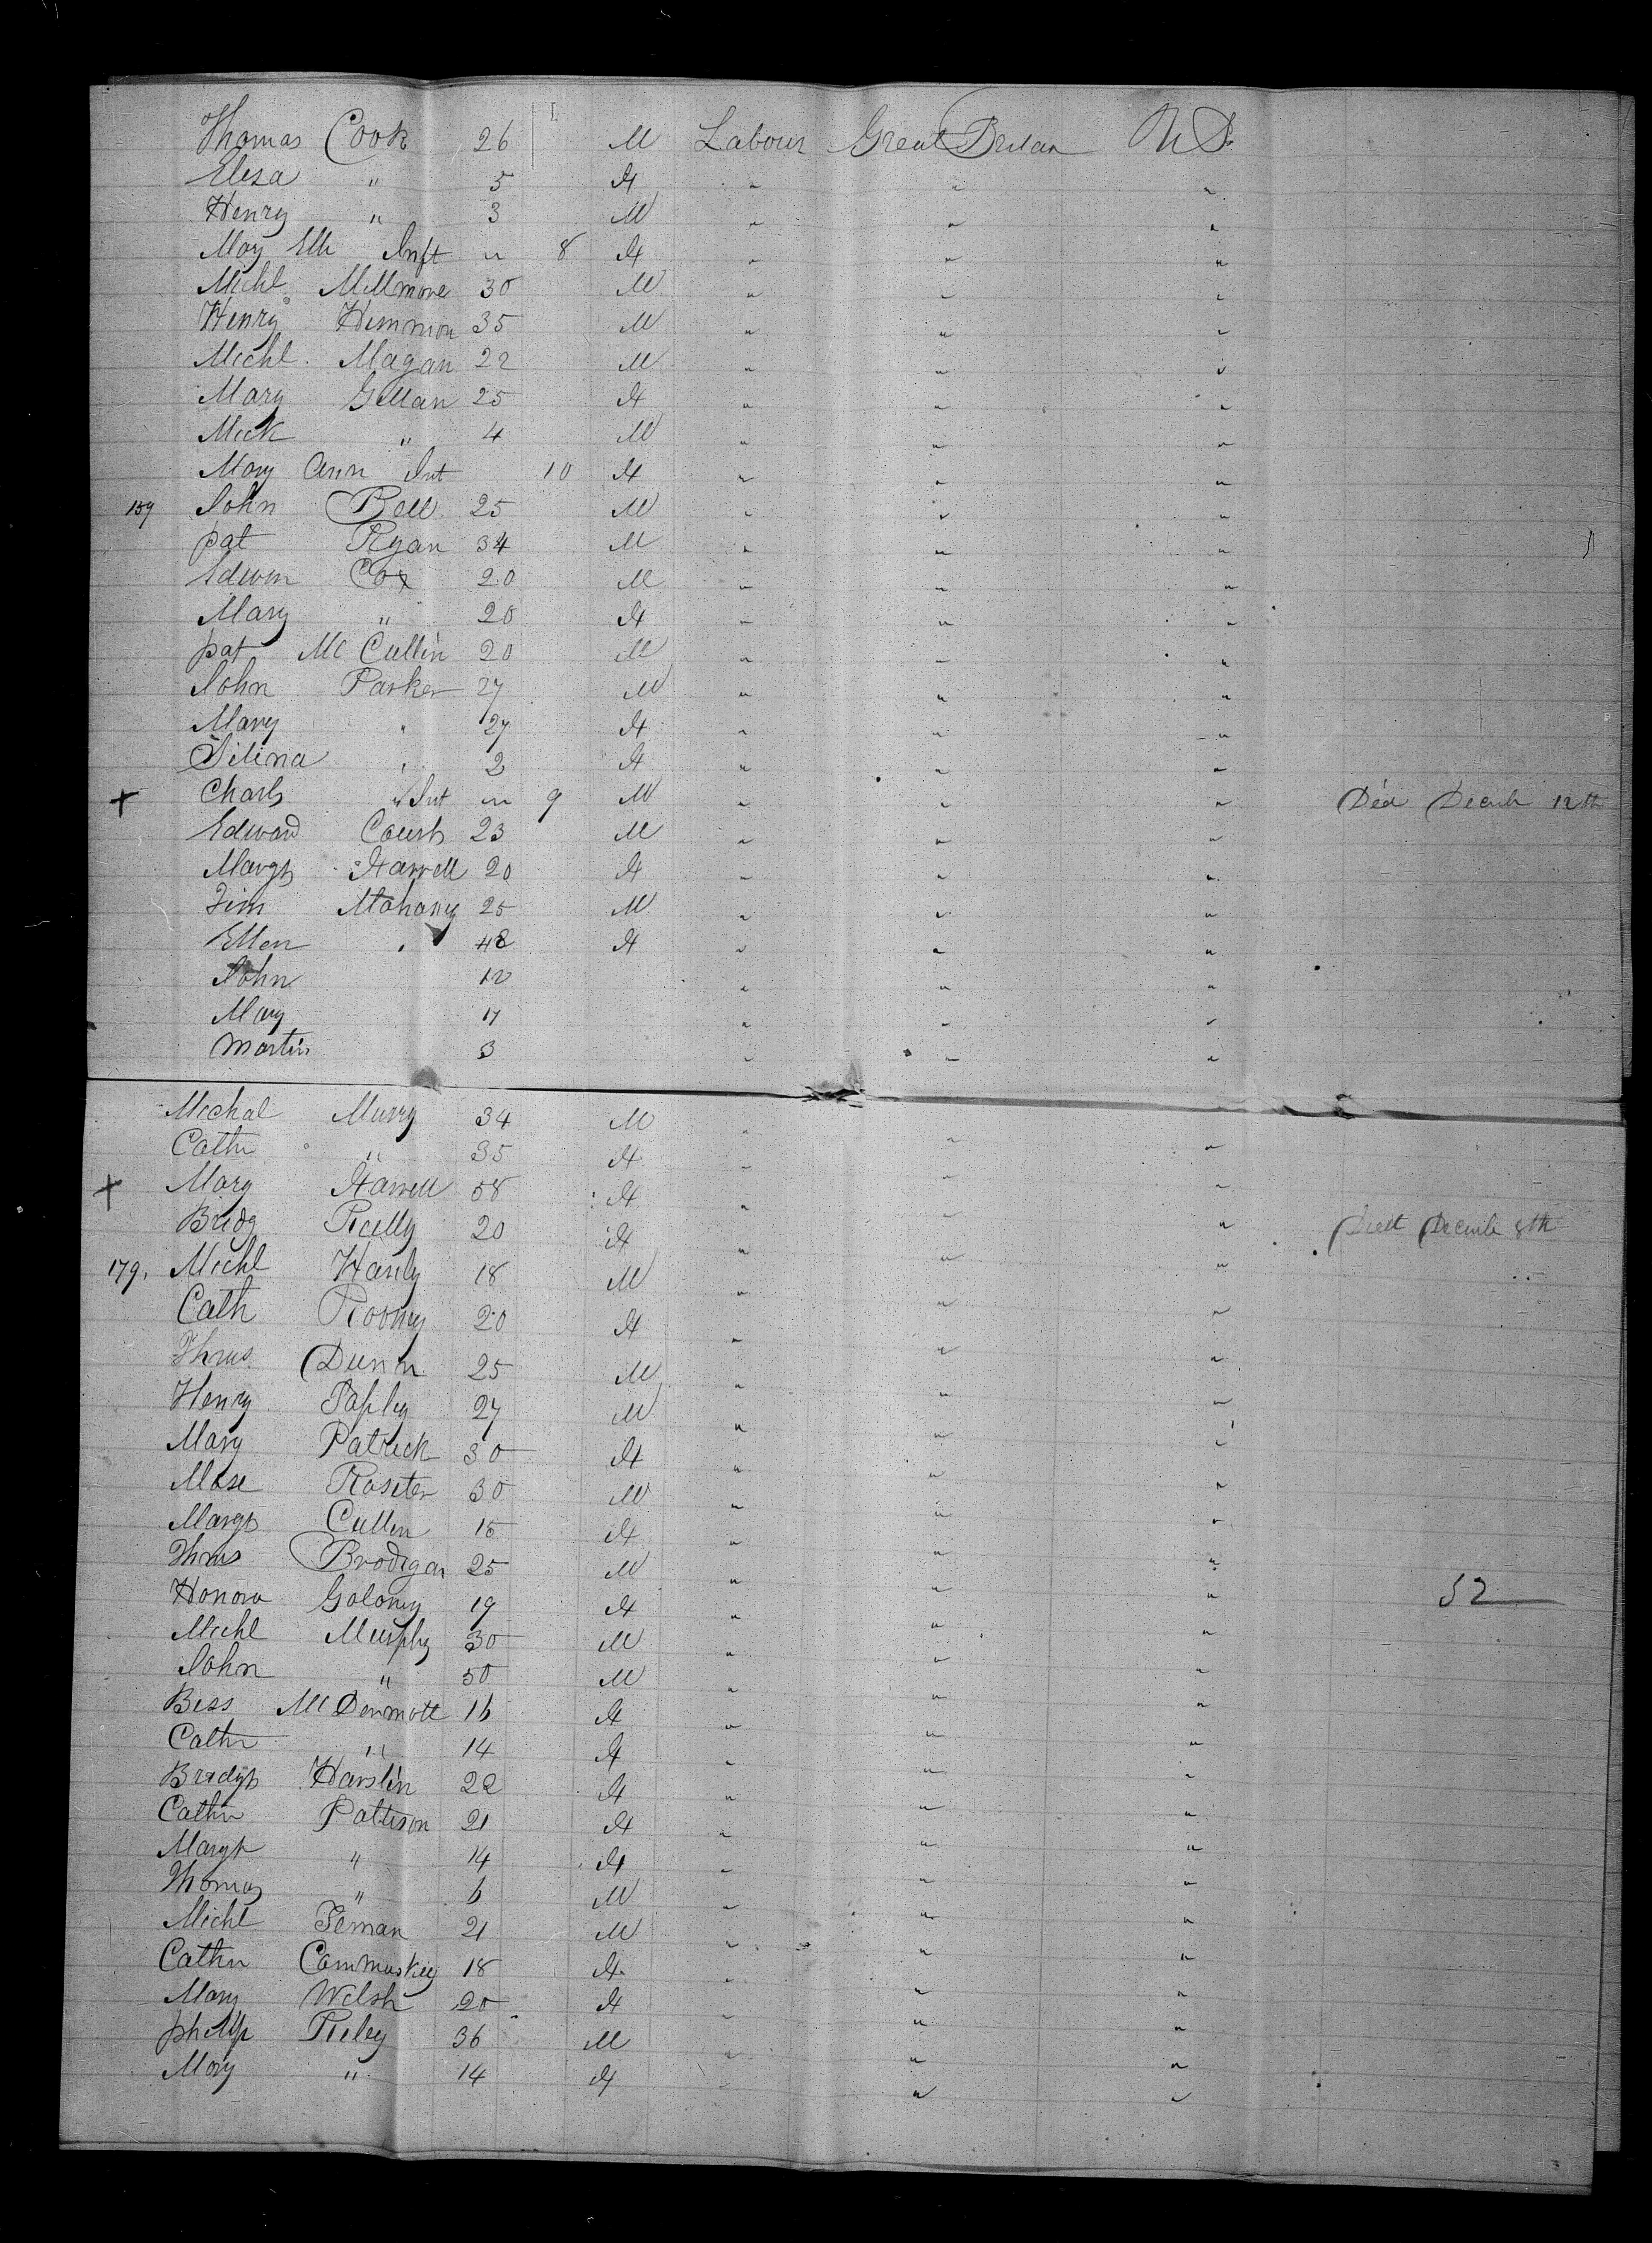 Thomas Cook 26 M Labour Great Britan U S.
Elisa " 5 F " " "
Henry " 3 M " " "
Mary Elh Inft " 8 F " " "
Michl Millmore 30 M " " "
Henry Hemmon 35 M " " "
Michl. Magan 22 M " " "
Mary Gillan 25 F " " "
Mick " 4 M " " "
Mary Ann Int 10 F " " "
159 John Bell 25 M " " "
pat Ryan 34 M " " "
Edwin Cox 20 M " " "
Mary " 20 F " " "
pat Mc Cullin 20 M " " "
John Parker 27 M " " "
Mary " 27 F " " "
Silina " 2 F " " "
+ Charls " Int " 9 M " " " Died Decmb 12th
Edward 23 M " " "
Margt Farrell 20 F " " "
Tim Mahony 25 M " " "
Ellen " 48 F " " "
John 12 " " "
Mary 17 " " "
Martin 3 " " "
Michal Murry 34 M " " "
Cathr " 35 F " " "
+ Mary Farrell 58 F " " "
Bridg Rielly 20 F " " " Died Decmb 8th
179. Michl Hanly 18 M " " "
Cath Rooney 20 F " " "
Thms. Dunn 25 M " " "
Henry Tapley 27 M " " "
Mary Patrick 30 F " " "
Mose Rositer 30 M " " "
Margt Cullen 15 F " " "
Thms Brodigan 25 M " " "
Honora Goloney 19 F " " " 52
Michl Murphy 30 M " " "
John " 50 M " " "
Bess Mc Dermott 16 F " " "
Cathr " 14 F " " "
Bridgt Harslin 22 F " " "
Cathr Pattison 21 F " " "
Margt " 14 F " " "
Thomas " 6 M " " "
Michl 21 M " " "
Cathn Commuskey 18 F " " "
Mary Welsh 20 F " " "
philip Rieley 36 M " " "
Mary " 14 F " " "